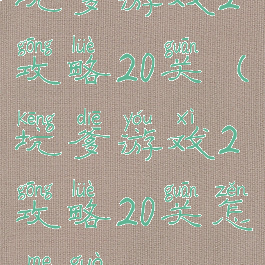 坑爹游戏2
gōng lüè guān
攻略20关（
kēng diē yóu xì
坑爹游戏2
gōng lüè guān zěn
攻略20关怎
me guò